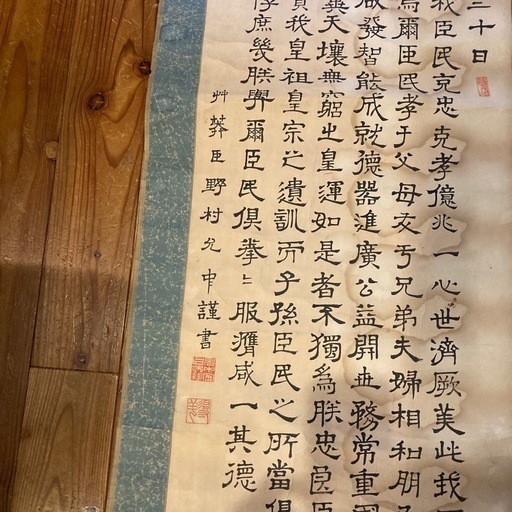 三十日
我臣民克忠克孝億兆一心世濟厥美此我
爲爾臣民孝于父母友于兄弟夫婦相和朋
發智能成就德器進廣公益開世務常重國
天壤無窮之皇運如是者不獨爲朕忠良臣
我皇祖皇宗之遺訓而子孫臣民之所當俱
悖庶幾朕與爾臣民俱拳〻服膺咸一其德
艸莽臣野村允中謹書